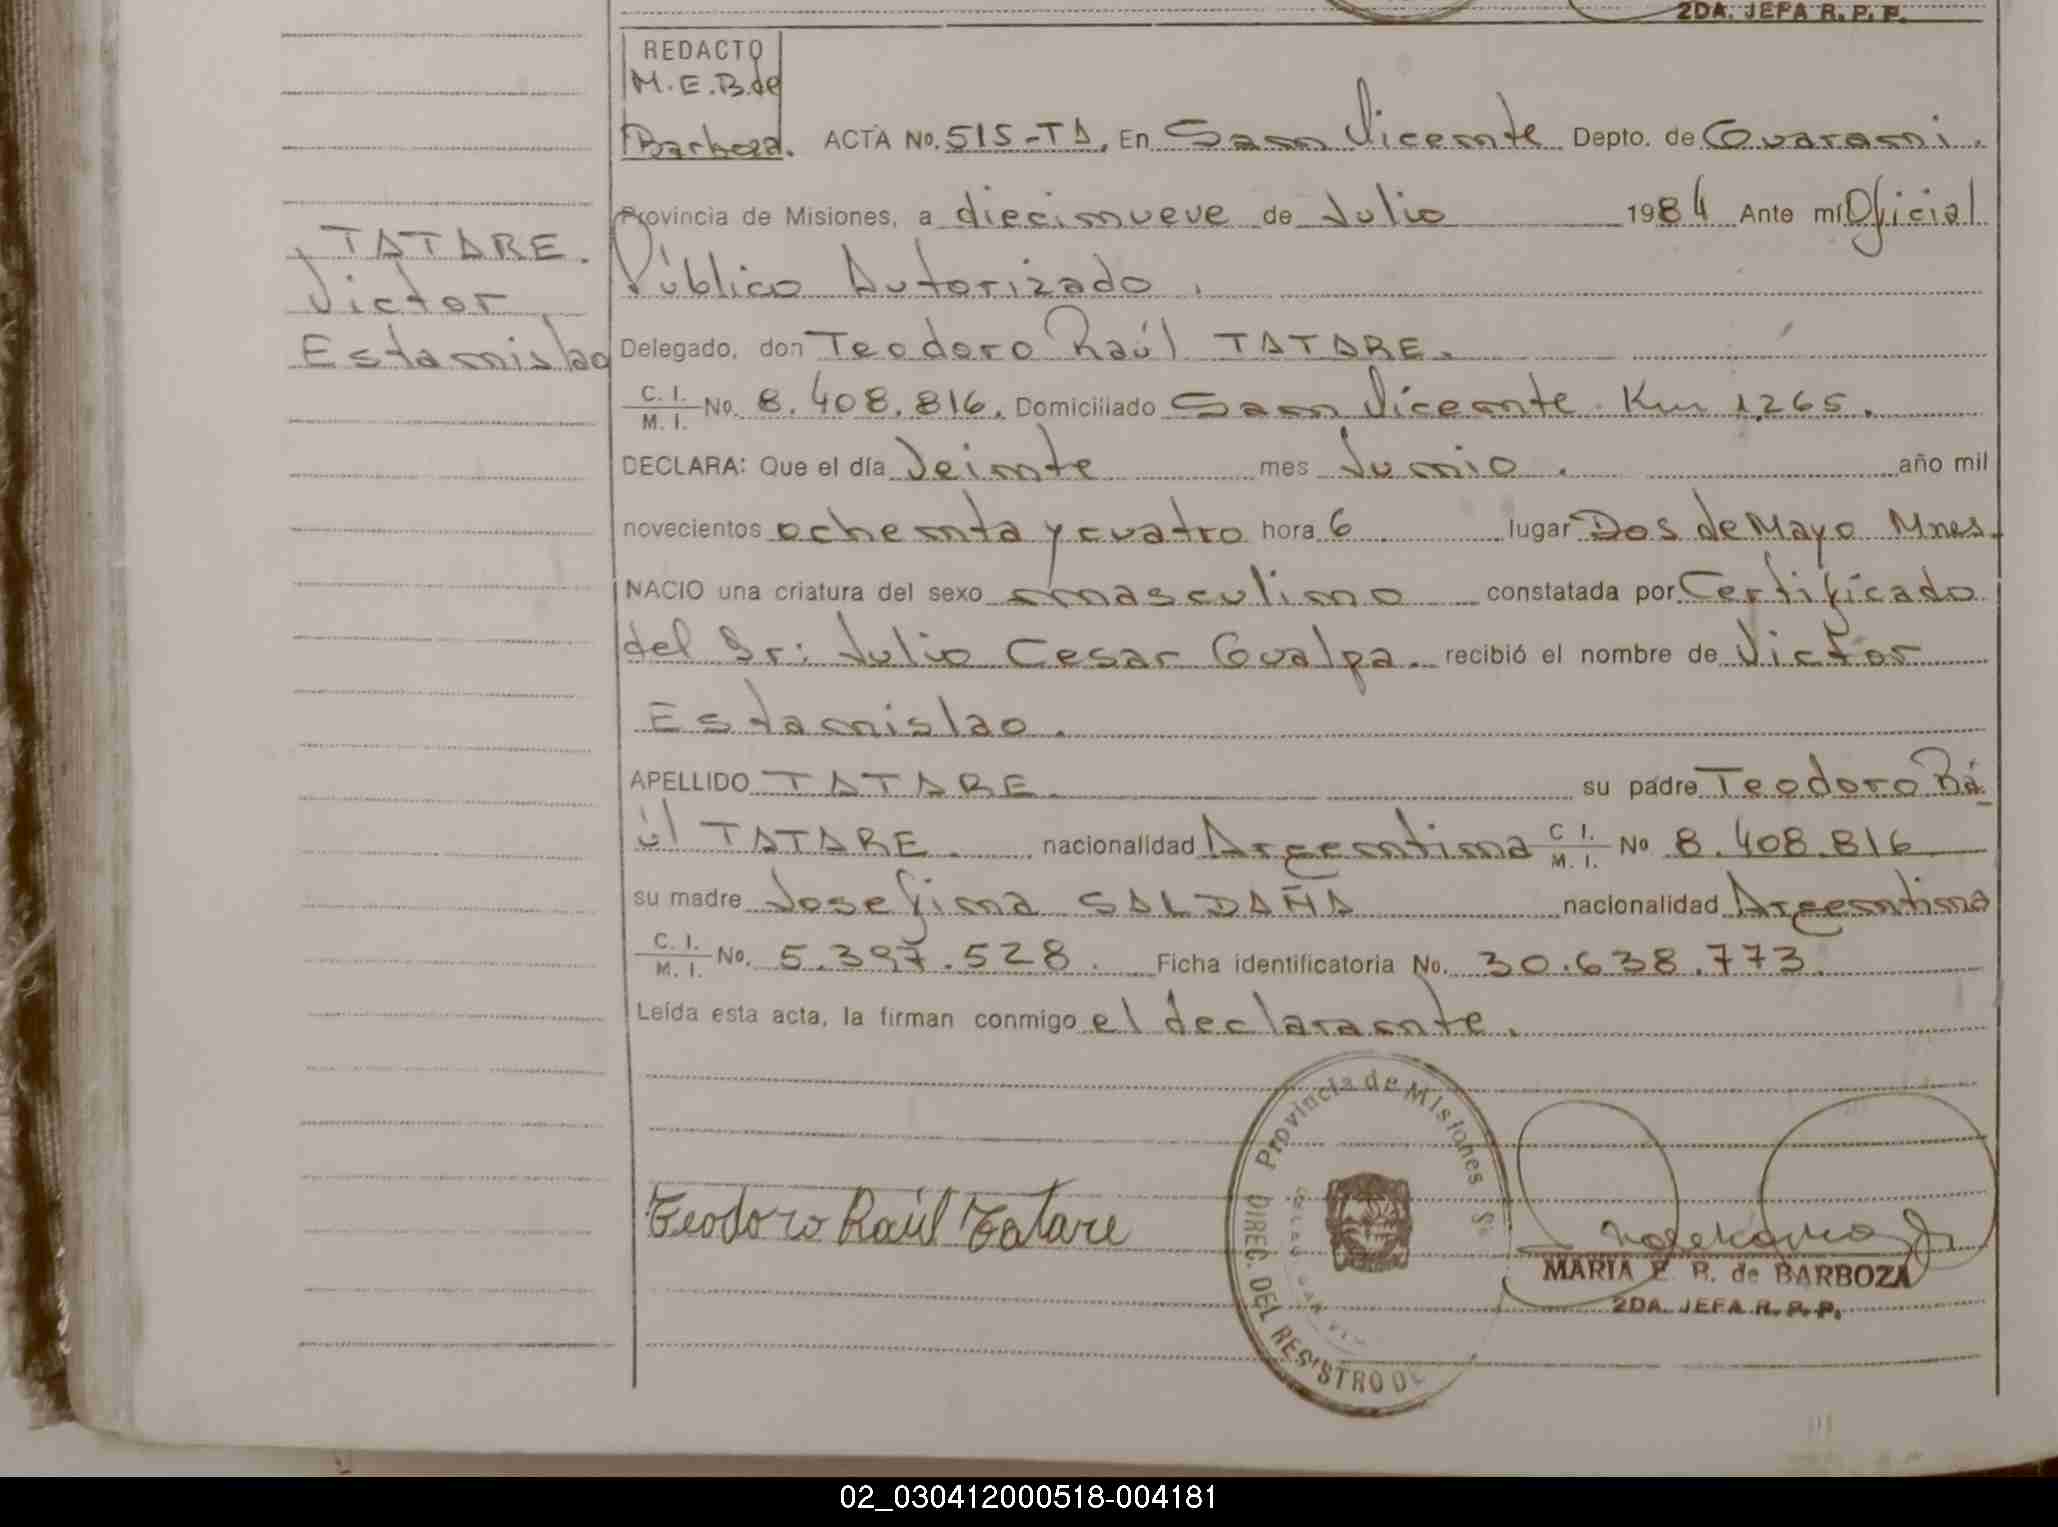 2DA. JEFA R. P. P.
REDACTO
M.E.B. de
Barboza. ACTA No. 515-TA. En San Vicente Depto. de Guarani.
Provincia de Misiones, a diecinueve de Julio 1984 Ante mí Oficial
Público Autorizado.
TATARE.
Victor
Estanislao
Delegado, don Teodoro Raúl TATARE.
C. I.
M. I. No. 8.408.816. Domiciliado San Vicente. Km 1265.
DECLARA: Que el día Veinte mes Junio. año mil
novecientos ochenta y cuatro hora 6 lugar Dos de Mayo Mnes.
NACIO una criatura del sexo masculino constatada por Certificado
del Sr: Julio Cesar Gualpa. recibió el nombre de Victor
Estanislao.
APELLIDO TATARE. su padre Teodoro Ra-
úl TATARE. nacionalidad Argentina C I.
M. I. No 8.408.816
su madre Josefina SALDAÑA nacionalidad Argentina
C. I.
M. I. No. 5.397.528. Ficha identificatoria No. 30.638.773.
Leída esta acta, la firman conmigo el declarante.
Provincia de Misiones
DIREC. DEL REGISTRO DE
Teodoro Raúl Tatare
MARIA E. B. de BARBOZA
2DA. JEFA R. P. P.
02_030412000518-004181